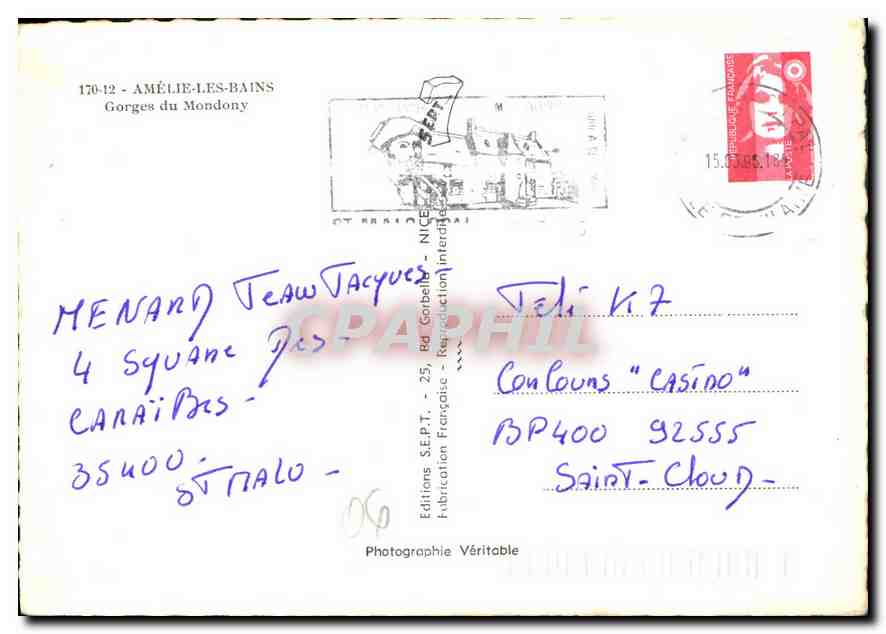 170-12 - AMÉLIE-LES-BAINS
Gorges du Mondony
SEPT
RÉPUBLIQUE FRANÇAISE
LA POSTE
MENARD Jean Jacques -
4 Square Des -
CARAÏBES -
35400 -
ST MALO -
06
Editions S.E.P.T. - 25, Bd Gorbella - NICE
Fabrication Française - Reproduction interdite
CPAPHIL
Télé K7
Concours "CASINO"
BP400 92555
SAINT-CLOUD -
Photographie Véritable